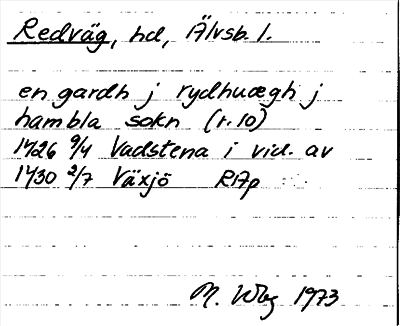 Redväg, hd, Älvsb. l.
en gardh j rydhuægh j
hambla sokn (r. 10)
1426 9/4 Vadstena i vid. av
1430 2/7 Växjö RAp
M. 1973